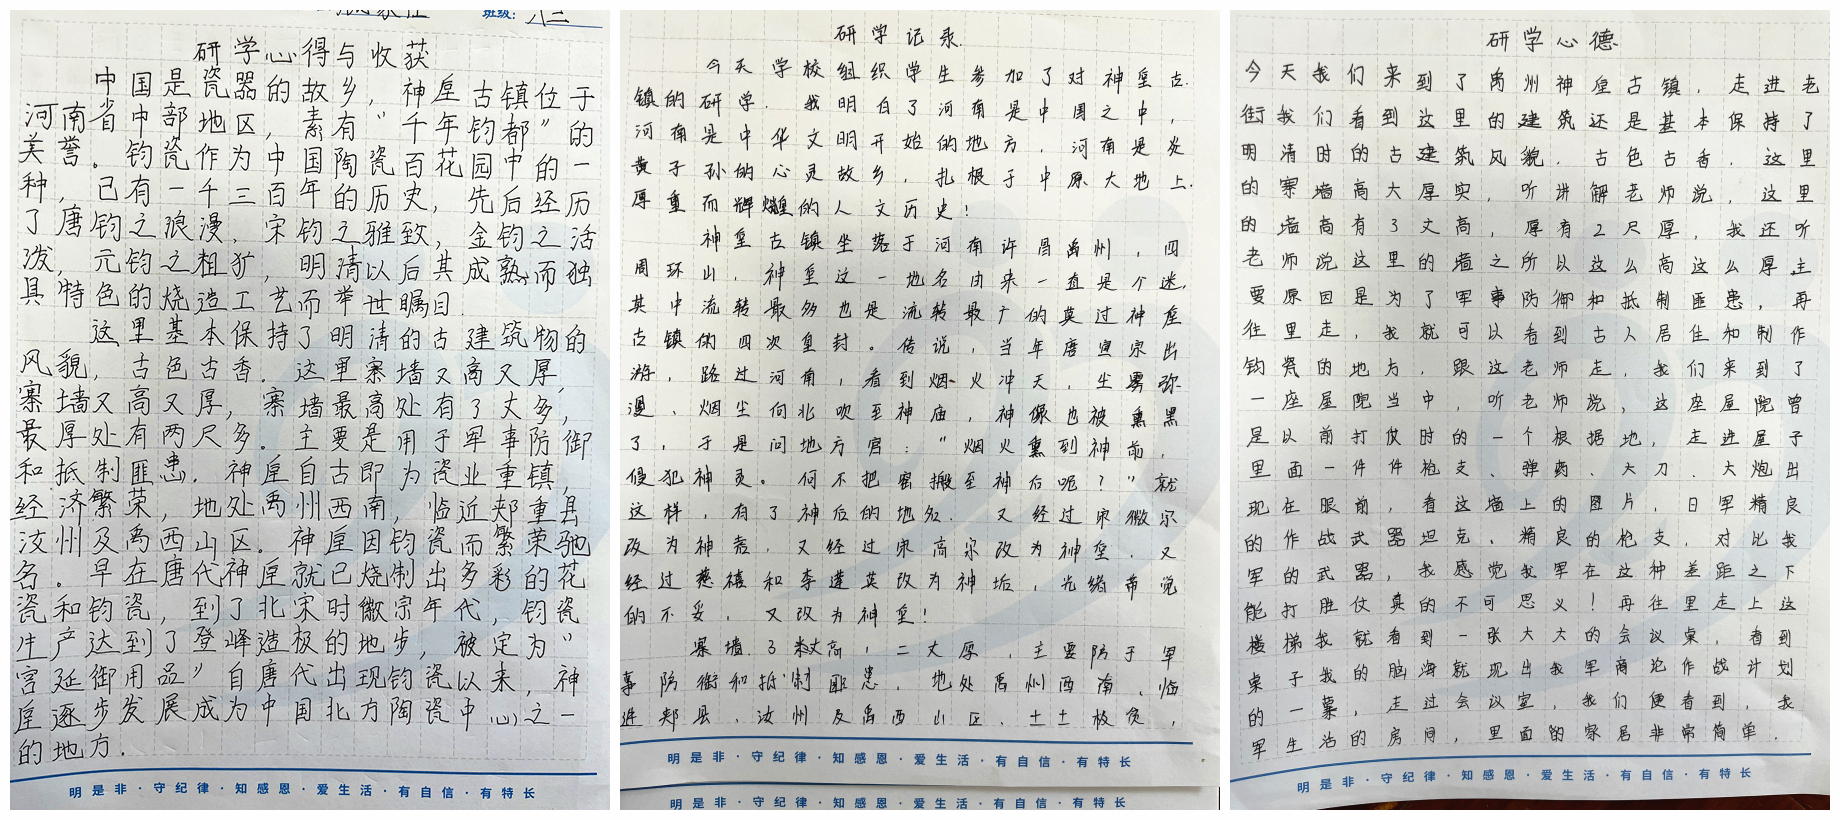 班级：八三
研学心得与收获
中国是瓷器的故乡，神垕古镇位于
河南省中部地区，素有“千年钧都”的
美誉。钧瓷作为中国陶瓷百花园中的一
种，已有一千三百年的历史，先后经历
了唐钧之浪漫，宋钧之雅致，金钧之活
泼，元钧之粗犷，明清以后其成熟而独
具特色的烧造工艺而举世瞩目.
这里基本保持了明清的古建筑物的
风貌，古色古香．这里寨墙又高又厚，
寨墙又高又厚，寨墙最高处有了丈多，
最厚处有两尺多。主要是用于军事防御
和抵制匪患．神垕自古即为瓷业重镇，
经济繁荣，地处禹州西南，临近郏重县
汝州及禹西山区。神垕因钧瓷而繁荣驰
名。早在唐代神垕就已烧制出多彩的花
瓷和钧瓷，到了北宋时徽宗年代，钧瓷
生产达到了登峰造极的地步，被定为“
宫延御用品”自唐代出现钧瓷以来，神
垕逐步发展成为中国北方陶瓷中心之一
的地方．
明是非·守纪律·知感恩·爱生活·有自信·有特长
研学记录.
今天学校组织学生参加了对神垕古.
镇的研学．我明白了河南是中国之中，
河南是中华文明开始的地方，河南是炎
黄子孙的心灵故乡，扎根于中原大地上．
厚重而辉煌的人文历史！
神垕古镇坐落于河南许昌禹州，四
周环山．神垕这一地名由来一直是个迷，
其中流转最多也是流转最广的莫过神垕
古镇的四次重封。传说，当年唐宣宗出
游，路过河南，看到烟火冲天，尘雾弥
漫，烟尘向北吹至神庙，神像也被熏黑
了，于是问地方官：“烟火熏到神前，
侵犯神灵。何不把窑搬至神后呢？”就
这样，有了神后的地名．又经过宋徽宗
改为神，又经过宋高宗改为神垕．又
经过慈禧和李莲英改为神垢，光绪帝觉
的不妥，又改为神垕！
寨墙．3丈高，二丈厚，主要防于军
事防衔和抵制匪患．地处禹州西南，临
进郏县．汝州及禹西山区．土土极负，
明是非·守纪律·知感恩·爱生活·有自信·有特长
明是非·守纪律·知感恩·爱生活·有自信·有特长
研学心德
今天我们来到了禹州神垕古镇．走进老
街我们看到这里的建筑还是基本保持了
明清时的古建筑风貌．古色古香．这里
的寨墙高大厚实，听讲解老师说，这里
的墙高有3丈高，厚有2尺厚，我还听
老师说这里的墙之所以这么高这么厚主
要原因是为了军事防御和抵制匪患，再
往里走，我就可以看到古人居住和制作
钧瓷的地方，跟这老师走，我们来到了
一座屋院当中，听老师说，这座屋院曾
是以前打仗时的一个根据地，走进屋子
里面一件件枪支、弹药、大刀、大炮出
现在眼前，看这墙上的图片，日军精良
的作战武器坦克、精良的枪支，对比我
军的武器，我感觉我军在这种差距之下
能打胜仗真的不可思义！再往里走上这
楼梯我就看到一张大大的会议桌，看到
桌子我的脑海就现出我军商论作战计划
的一幕，走过会议室，我们便看到，我
军生活的房间，里面的家居非常简单．
明是非·守纪律·知感恩·爱生活·有自信·有特长